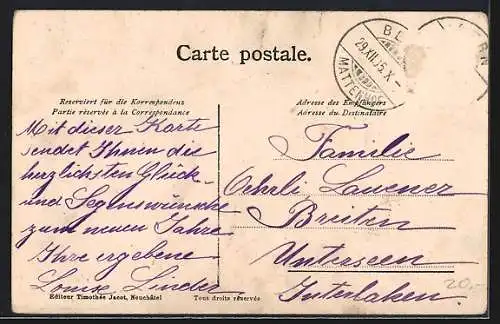 Carte postale.
29.XII.05.X-
Reserviert für die Korrespondenz
Partie réservée à la Correspondance
Adresse des Empfängers
Adresse du Destinataire
Mit dieser Karte
sendet Ihnen die
herzlichsten Glück-
und Segenswünsche
zum neuen Jahre
Ihre ergebene
Louise Linder
Familie
Oehrli Lauener
Breiten
Unterseen
Interlaken.
Editeur Timothée Jacot, Neuchâtel
Tous droits réservés
20,-